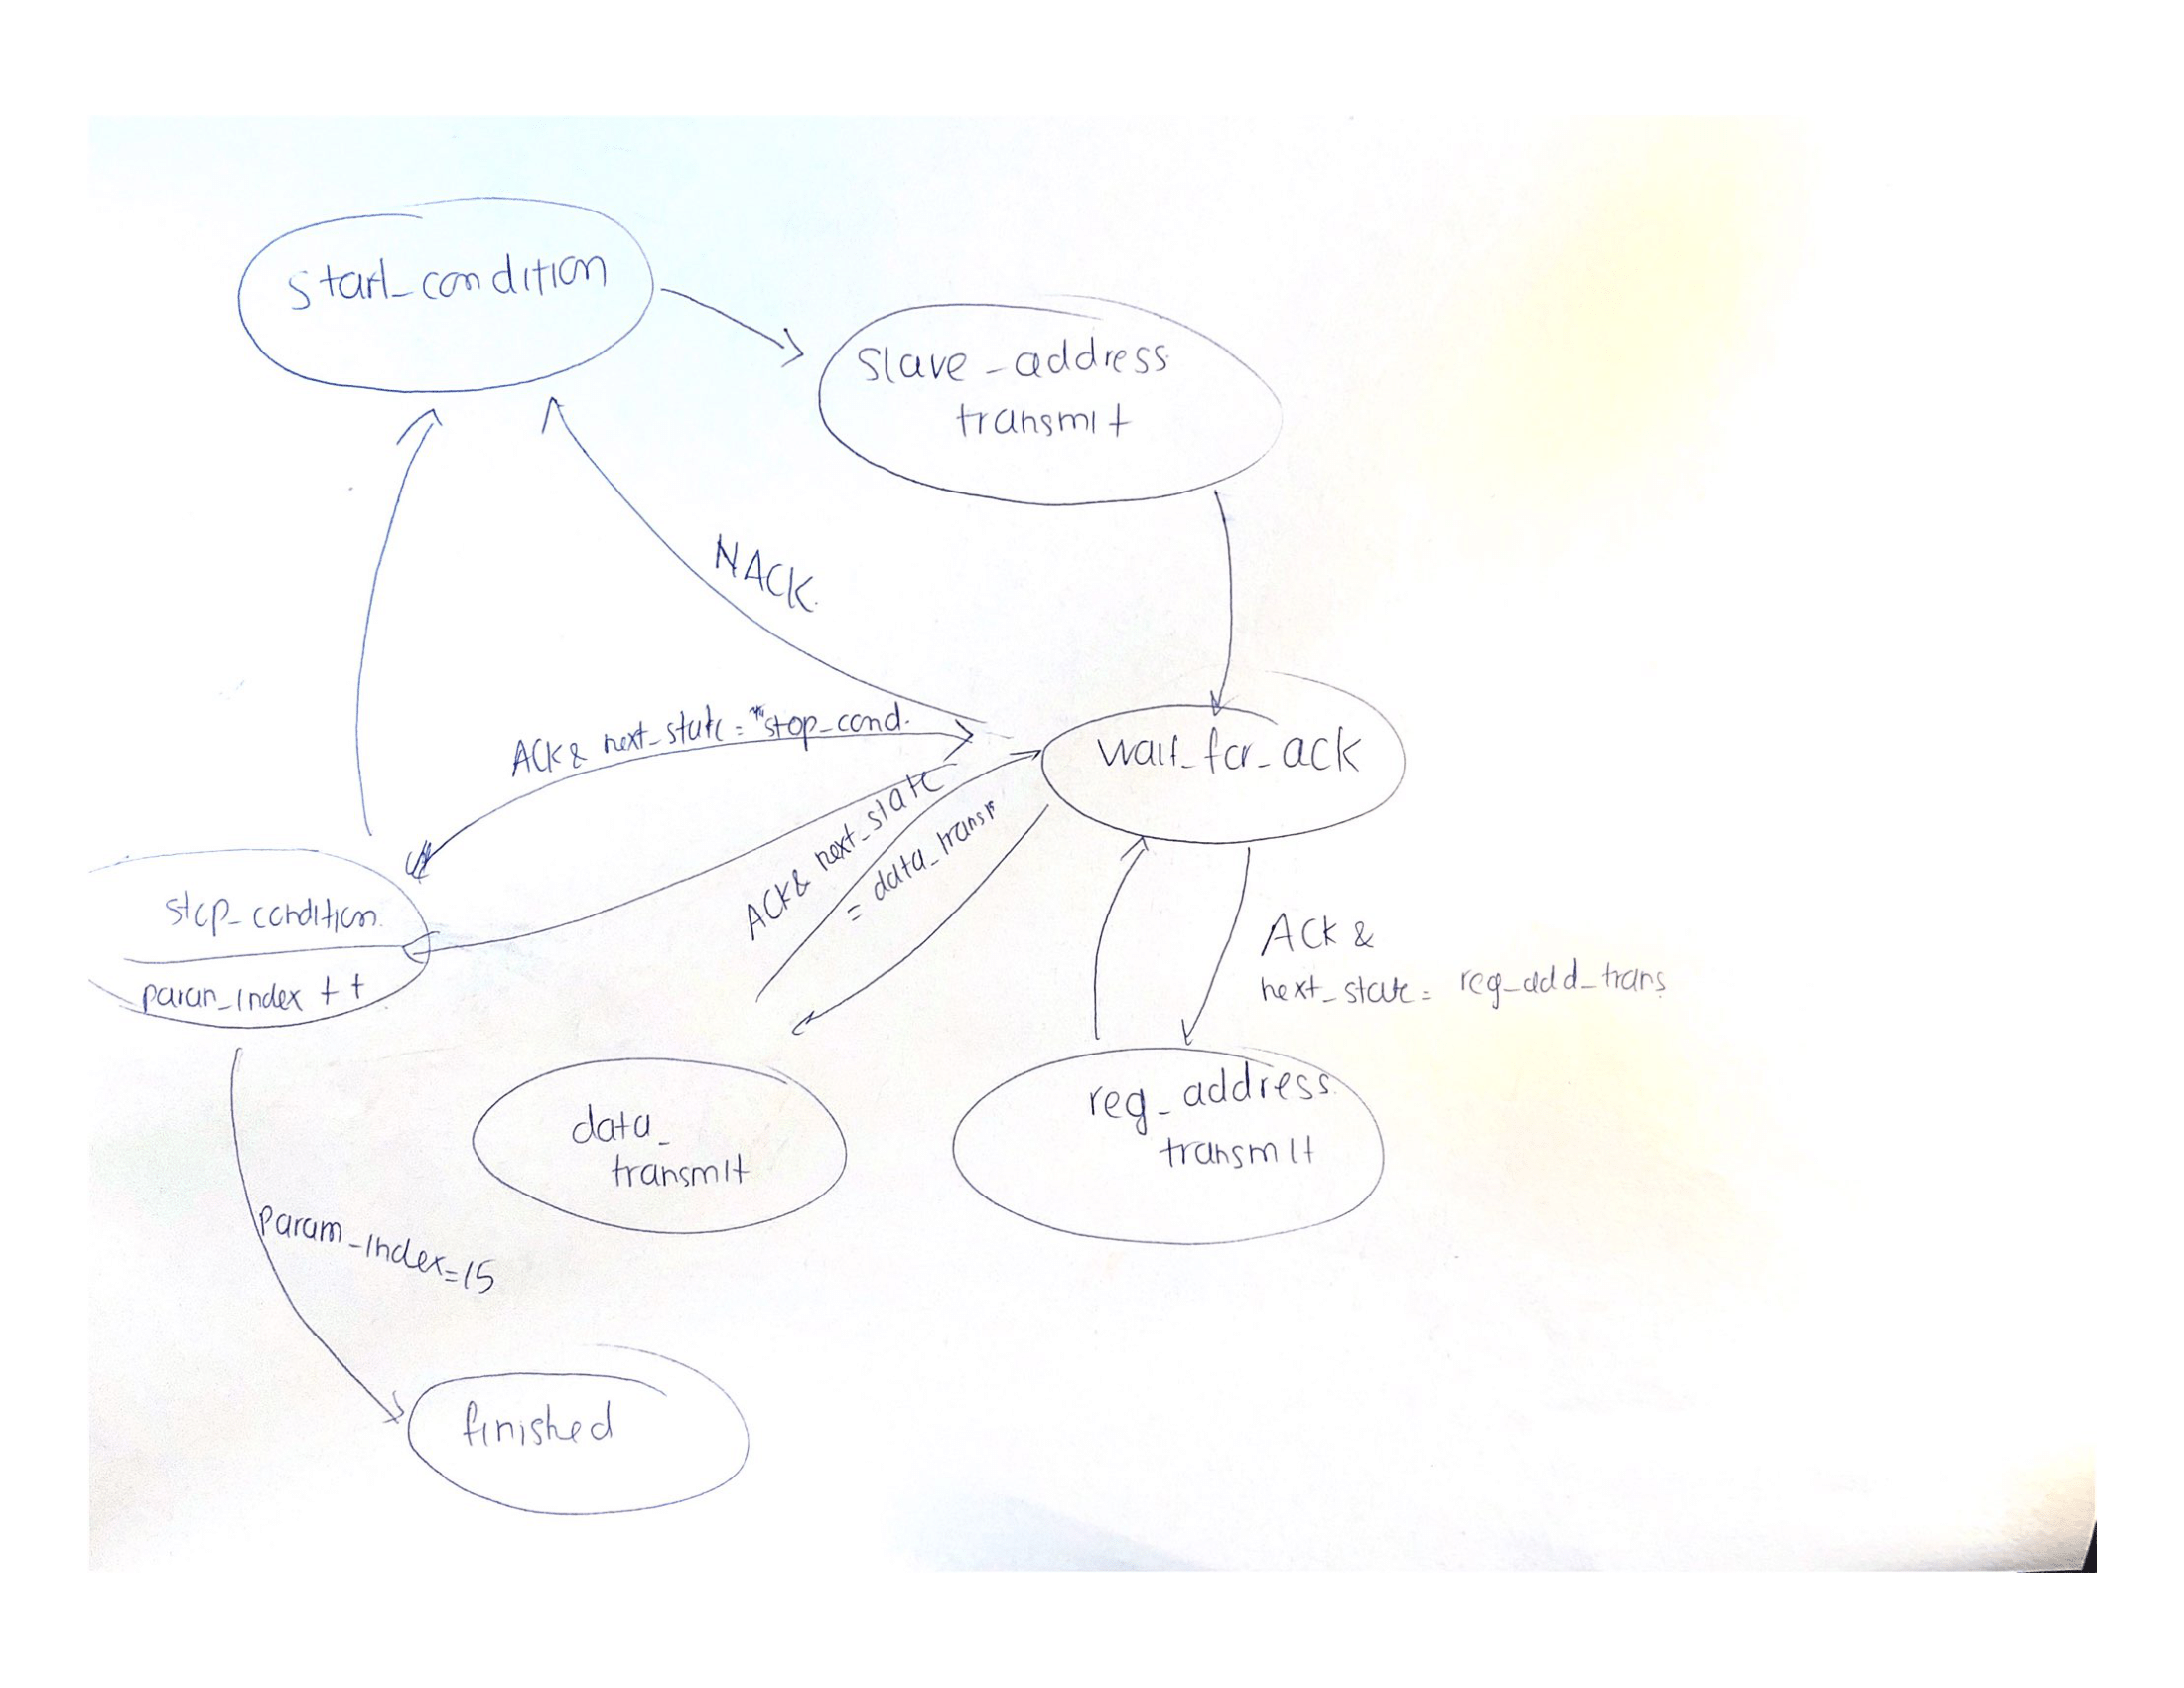 start_condition
slave_address
transmit
NACK.
ACK & next_state = "stop_cond.
wait_for_ack
ACK & next_state
= data_transr
stop_condition.
param_index ++
ACK &
next_state = reg_add_trans
data_
transmit
reg_address.
transmit
param_index=15
finished